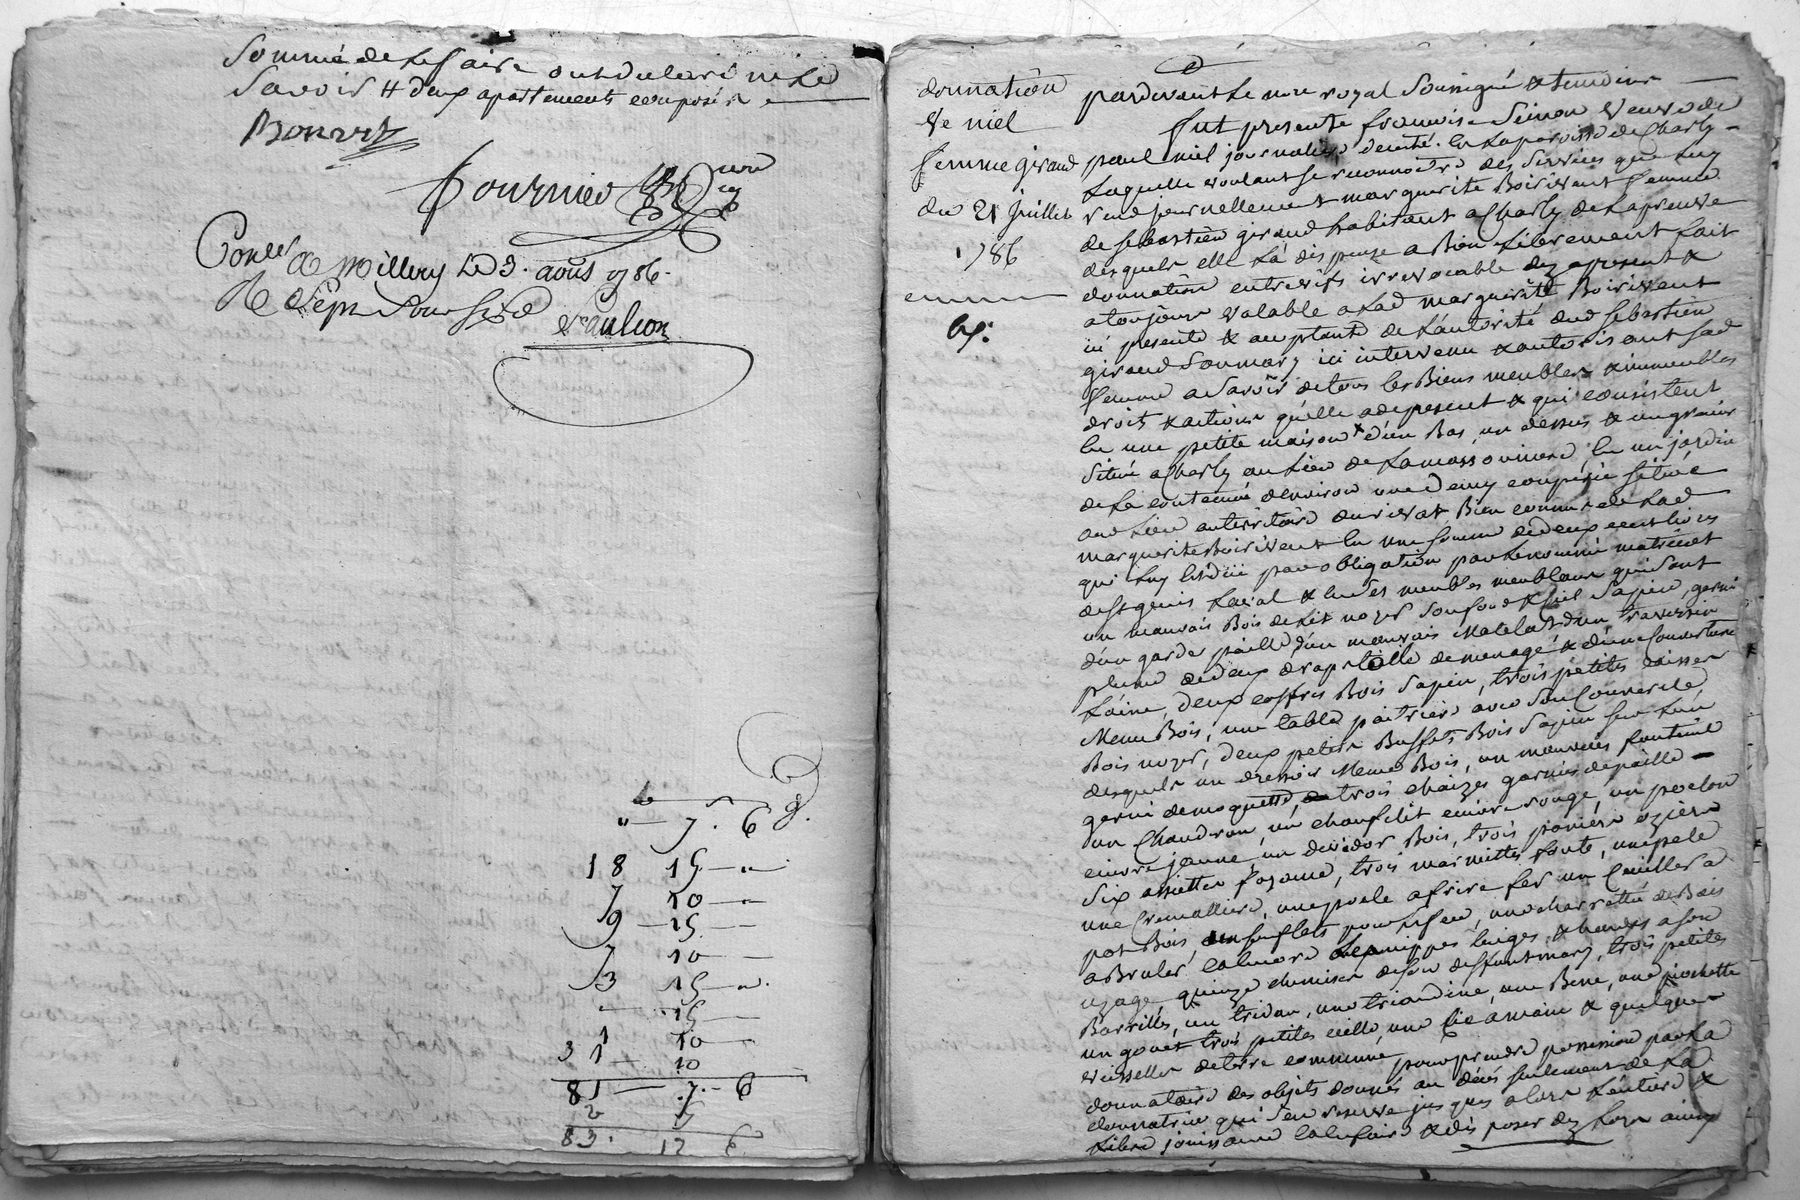 Sommé de le faire ont déclaré ne le
Savoir # deux apartements composés
Bonard
fournier
Con.lé a Millery le 3. aous 1786.
R sept sous six d
Vaulion
" — 7. 6
18 15 — "
7 10 — "
9 — 15 —
7 10 —
3 15 — "
15 —
1 10 —
3 1 10
81 — 7. — 6
2 5
83. 12 6
donnation
Ve niel
femme giraud
du 21 Juillet
1786
pardevant Le nore royal Soussigné & temoins
fut presente francoise Simon Veuve de
paul niel journalier de cette paroisse de Charly
Laquelle voulant se reconnoitre des Services que luy
rend journellement marguerite Boirivent femme
de sebastien giraud habitant a Charly de La preuve
desquels elle La dispense a Bien Librement fait
donnation entrevifs irrevocable dez apresent &
atoujours valable a Lad marguerite Boirivent
ici presente & acceptante de L'autorité dud Sebastien
giraud Son mary ici intervenu & autorisant sad
femme a Savoir de tous les Biens meubles & immeubles
droits & actions qu'elle a depresent & qui consistent
En une petite maison d'un Bas, un dessus & un grenier
Situé a Charly au Lieu de La massonniere En un jardin
de La contenue denviron une demy couperie situé
aud Lieu au territoire du rivat Bien connus de Lad
marguerite Boirivent En une Somme de deux cent livres
qui Luy est due par obligation par Le nommé
de st genis Laval & En Ses meubles meublans qui sont
un mauvais Bois de Lit noyer Son fond & Ciel Sapin, garni
d'un garde paille d'un mauvais Matelas d'un traversin
plume de deux drap toille de menage & d'une Couverture
Laine, deux coffres Bois Sapin, trois petites caisses
Meme Bois, une table paitriere avec Son Couvercle
Bois noyer, deux petits Buffets Bois Sapin sur L'un
desquels un dressoir Meme Bois, un mauvais fauteuil
garni de moquette, trois chaizes garnies de paille
un Chaudron, un chaufelit cuivre rouge, un poelon
cuivre jaune, un devidor Bois, trois paniers oziere
Six assiettes fayance, trois marmittes fonte, une pele
une Cremalliere, une poele a frire fer un Cueiller a
pot Bois, un soufflets pour le feu, une charrettée de Bois
a Bruler, Encore Les nippes linges & hardes a son
uzage quinze chemises de feu deffunt mary, trois petites
Barrilles, un tridan, une triandine, une Bene, une piochette
un gouet trois petites scille, une Scie a main & quelques
vaisselles de terre commune pour prendre possession par La
donnataire des objets donnés au décés seulement de La
donnatrice qui s'en reserve jus ques alors L'entiere &
Libre jouissance